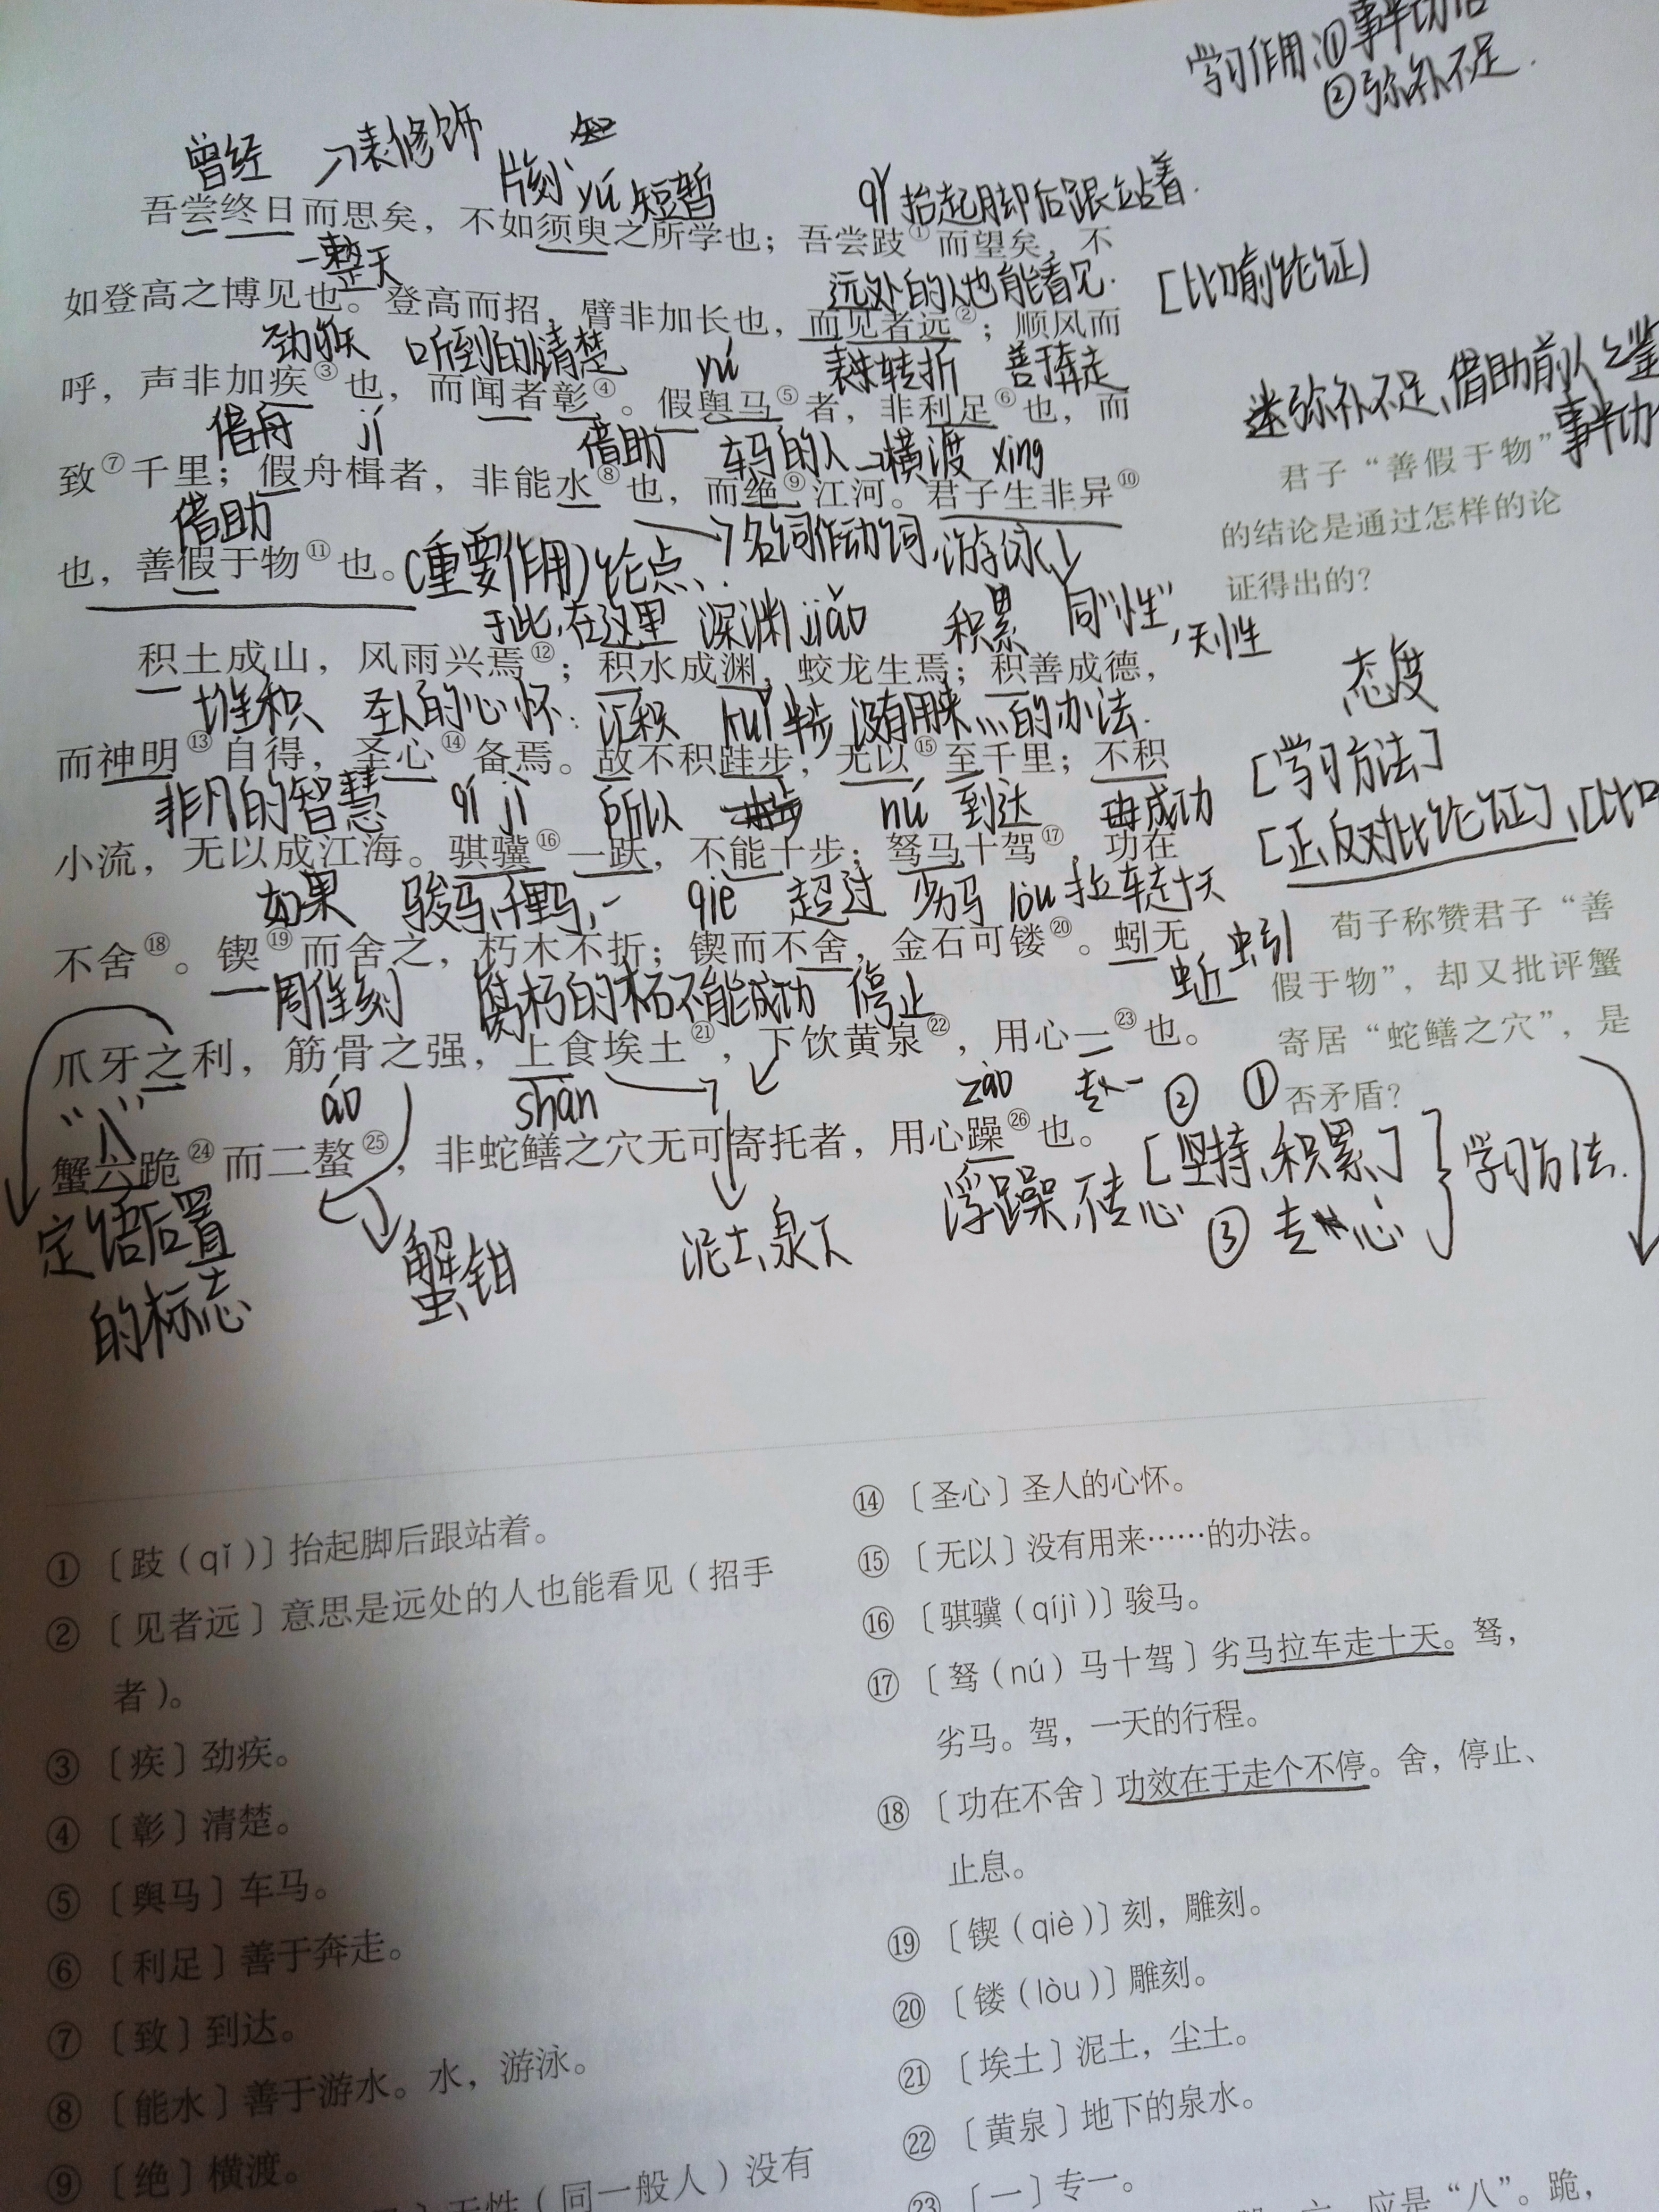 学习作用：①事半功倍
②弥补不足.
曾经 →表修饰 片刻 yú 短暂 qǐ 抬起脚后跟站着.
吾尝终日而思矣，不如须臾之所学也；吾尝跂①而望矣，不
一整天 远处的人也能看见. [比喻论证]
如登高之博见也。登高而招，臂非加长也，而见者远②；顺风而
劲疾 听到的清楚 yú 表转折 善于奔走
呼，声非加疾③也，而闻者彰④。假舆马⑤者，非利足⑥也，而
弥补不足、借助前人之鉴
借舟 jí 借助 车马的人 →横渡 xìng 事半功
致⑦千里；假舟楫者，非能水⑧也，而绝⑨江河。君子生非异⑩
君子“善假于物”
的结论是通过怎样的论
证得出的？
借助 →名词作动词，游泳
也，善假于物⑪也。(重要作用)论点、
于此，在这里 深渊 jiāo 积累 同“性”，天性
积土成山，风雨兴焉⑫；积水成渊，蛟龙生焉；积善成德，
态度
堆积 圣人的心怀. 汇积 kuǐ 半步 没有用来…的办法.
而神明⑬自得，圣心⑭备焉。故不积跬步，无以⑮至千里；不积
[学习方法]
非凡的智慧 qí jì 所以 nú 到达 成功
小流，无以成江海。骐骥⑯一跃，不能十步；驽马十驾⑰，功在
[正、反对比论证]、[比
如果 骏马，千里马， qiè 超过 劣马 lòu 拉车走十天
不舍⑱。锲⑲而舍之，朽木不折；锲而不舍，金石可镂⑳。蚓无
荀子称赞君子“善
假于物”，却又批评蟹
寄居“蛇鳝之穴”，是
否矛盾？
雕刻 腐朽的木不能成功 停止 蚯蚓
爪牙之利，筋骨之强，上食埃土㉑，下饮黄泉㉒，用心一㉓也。
“八” áo shàn zào 专一 ② ①
蟹六跪㉔而二螯㉕，非蛇鳝之穴无可寄托者，用心躁㉖也。
[坚持、积累、] 学习方法.
定语后置 蟹钳 泥土、泉下 浮躁，不专心 ③ 专心
的标志
①〔跂（qǐ）〕抬起脚后跟站着。
②〔见者远〕意思是远处的人也能看见（招手
者）。
③〔疾〕劲疾。
④〔彰〕清楚。
⑤〔舆马〕车马。
⑥〔利足〕善于奔走。
⑦〔致〕到达。
⑧〔能水〕善于游水。水，游泳。
⑨〔绝〕横渡。
天性（同一般人）没有
⑭〔圣心〕圣人的心怀。
⑮〔无以〕没有用来……的办法。
⑯〔骐骥（qíjì）〕骏马。
⑰〔驽（nú）马十驾〕劣马拉车走十天。驽，
劣马。驾，一天的行程。
⑱〔功在不舍〕功效在于走个不停。舍，停止、
止息。
⑲〔锲（qiè）〕刻，雕刻。
⑳〔镂（lòu）〕雕刻。
㉑〔埃土〕泥土，尘土。
㉒〔黄泉〕地下的泉水。
㉓〔一〕专一。
六，应是“八”。跪，